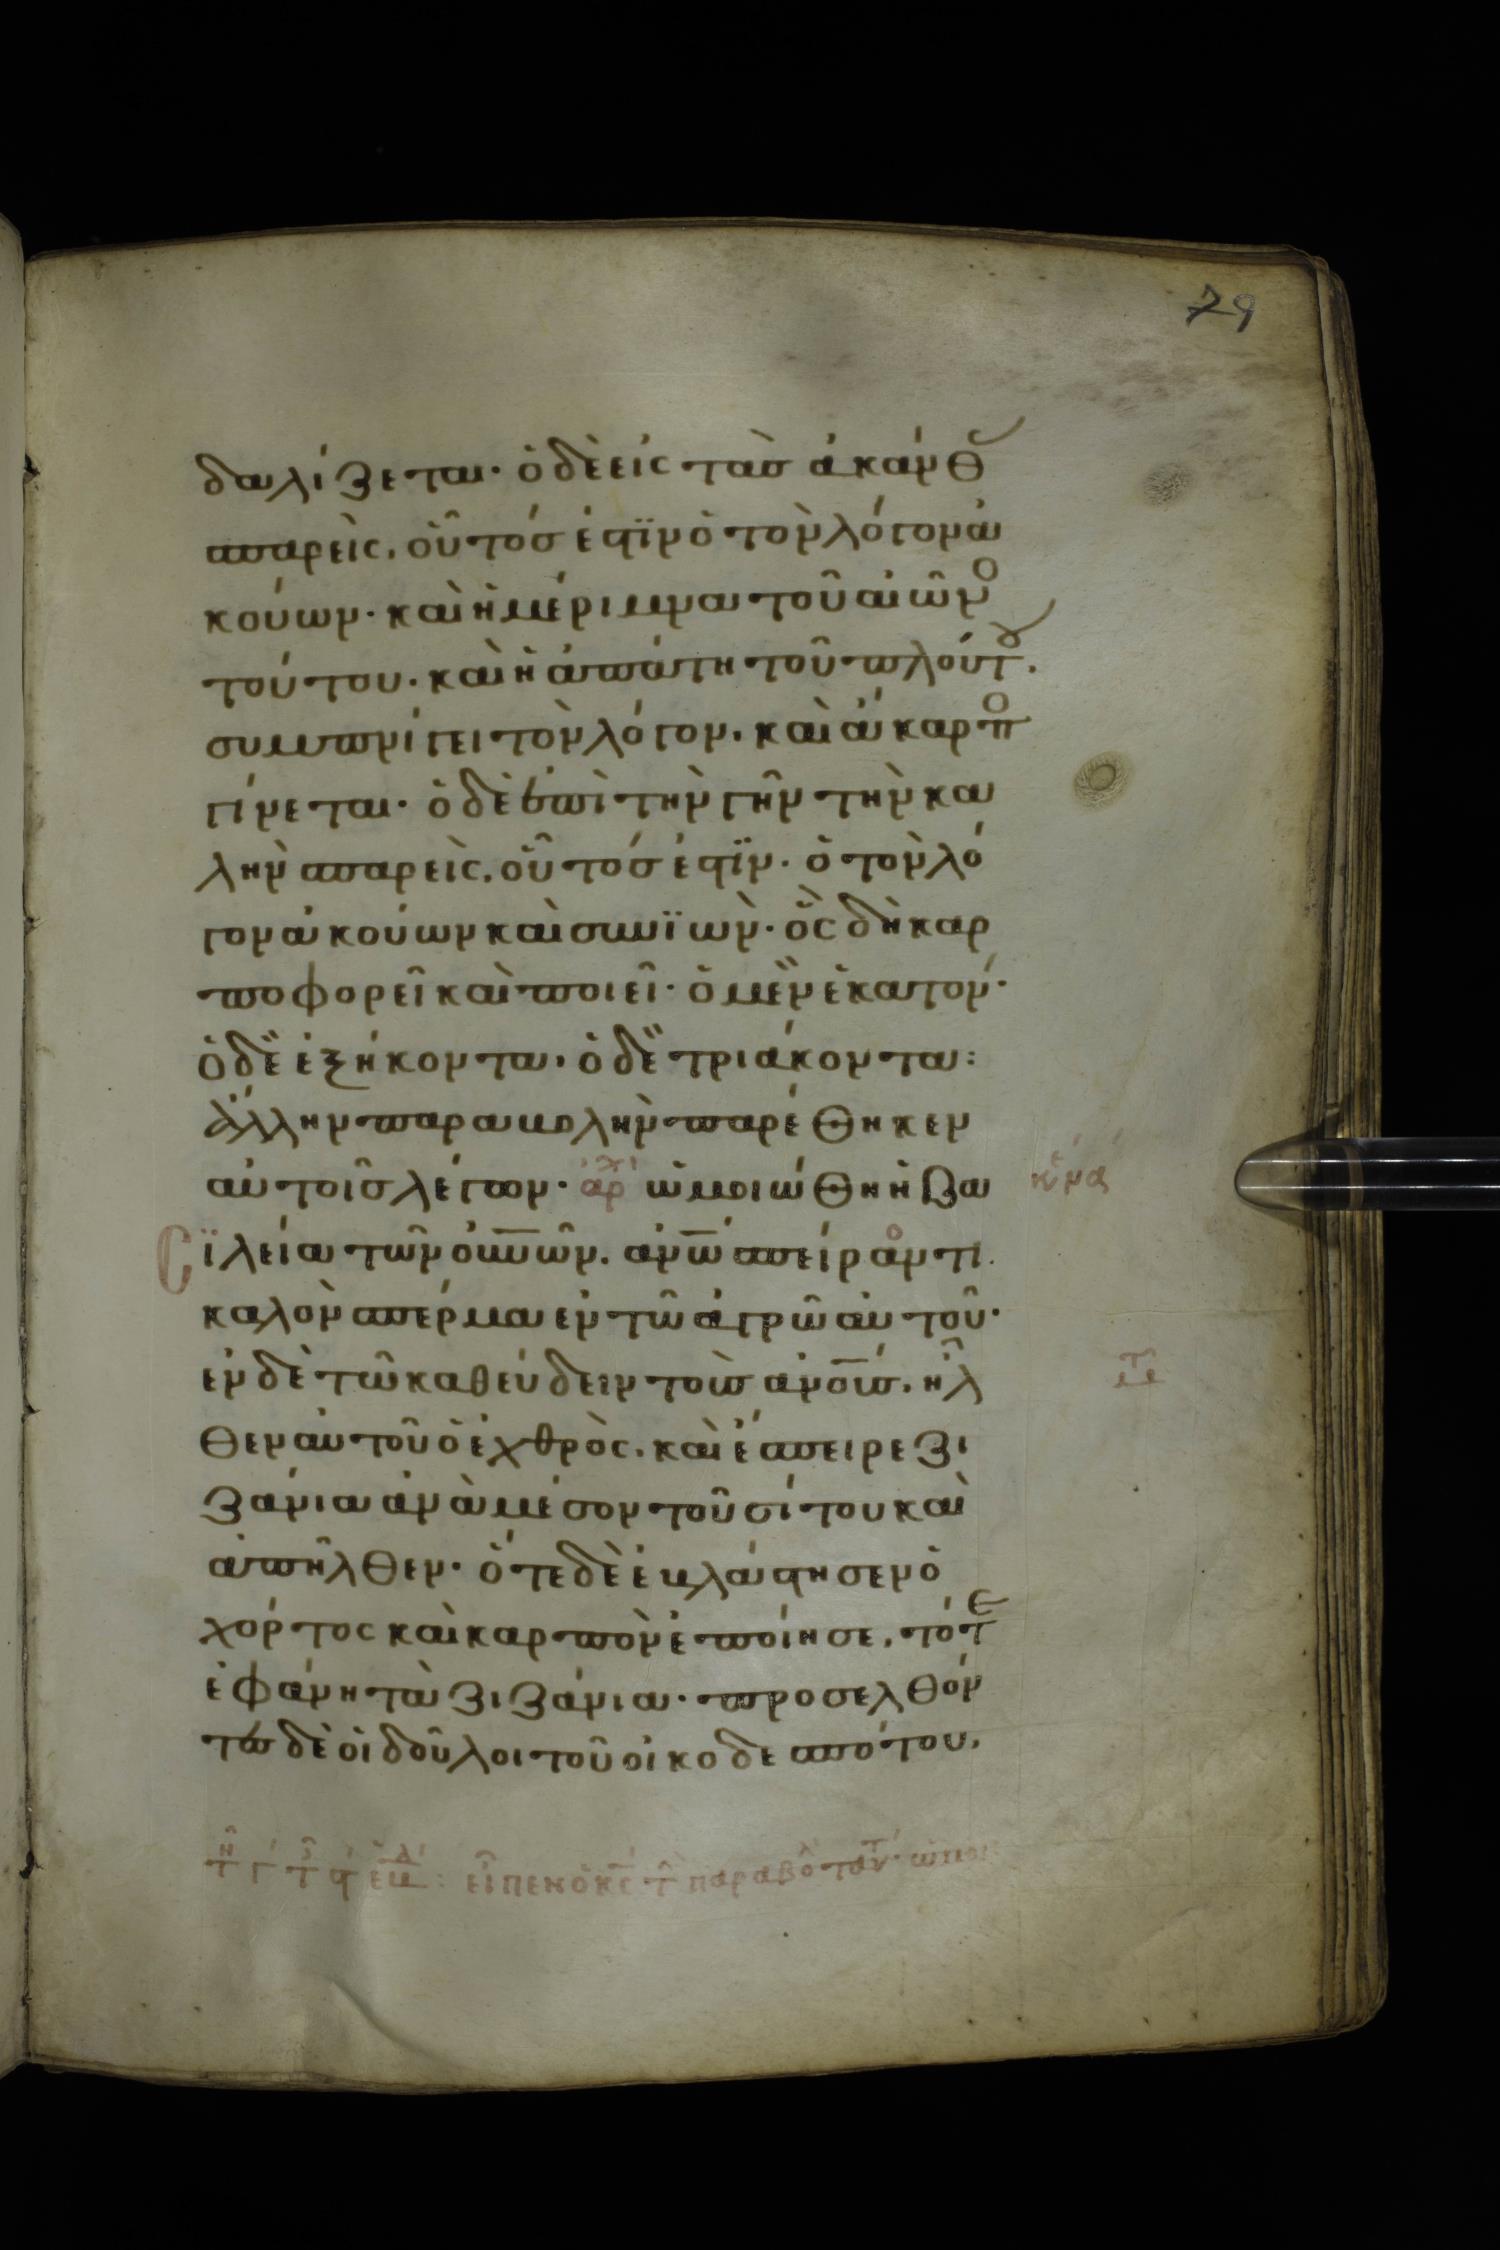 79
δαλίζεται· ὁ δὲ εἰς τὰσ ἀκάνθ
σπαρεὶς, οὗτόσ ἐστϊν ὁ τὸν λόγον ἀ
κούων· καὶ ἡ μέριμνα τοῦ αἰῶνο
τούτου· καὶ ἡ ἀπάτη τοῦ πλούτου.
συμπνίγει τὸν λόγον, καὶ ἄκαρπο
γίνεται· ὁ δὲ ἐπὶ τὴν γῆν τὴν κα
λὴν σπαρεὶς, οὗτόσ ἐστϊν· ὁ τὸν λό
γον ἀκούων καὶ συνϊὼν· ὃς δὴ καρ
ποφορεῖ καὶ ποιεῖ· ὁ μὲν ἑκατόν·
ὁ δὲ ἑξήκοντα, ὁ δὲ τριάκοντα:
Ἄλλην παραβολὴν παρέθηκεν
αὐτοῖσ λέγων· ἀρχ ὡμοιώθη ἡ βα
σϊλεία τῶν οὐνῶν. ἀνῶ σπείραντι
καλὸν σπέρμα ἐν τῶ ἀγρῶ αὐτοῦ·
ἐν δὲ τῶ καθεύδειν τοὺσ ἀνουσ, ἦλ
θεν αὐτοῦ ὁ ἐχθρὸς, καὶ ἔσπειρε ζι
ζάνια ἀνὰ μέσον τοῦ σίτου καὶ
ἀπῆλθεν· ὅτε δὲ ἐβλάστησεν ὁ
χόρτος καὶ καρπὸν ἐποίησε, τότε
ἐφάνη τὰ ζιζάνια· προσελθόν
τεσ δὲ οἱ δοῦλοι τοῦ οἰκοδεσπότου,
εἶπεν ὁ κς τ παραβο ταυτ· ὡμοι